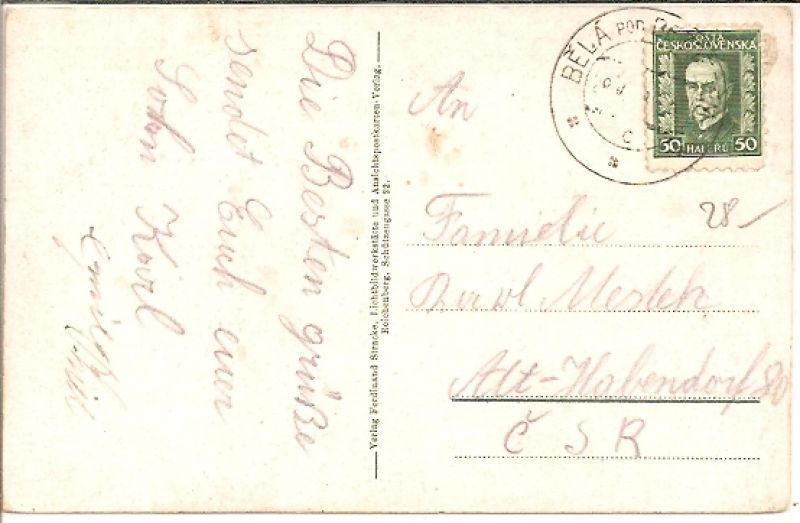 Die Besten grüße
sendet Euch euer
Sohn Karl
Verlag Ferdinand Stracke, Lichtbildwerkstätte und Ansichtspostkarten-Verlag,
Reichenberg, Schützengasse 22.
BĚLÁ POD
POŠTA
ČESKOSLOVENSKÁ
50 HALÉŘŮ 50
28-
An
Familie
Alt-Habendorf 80
Č S R